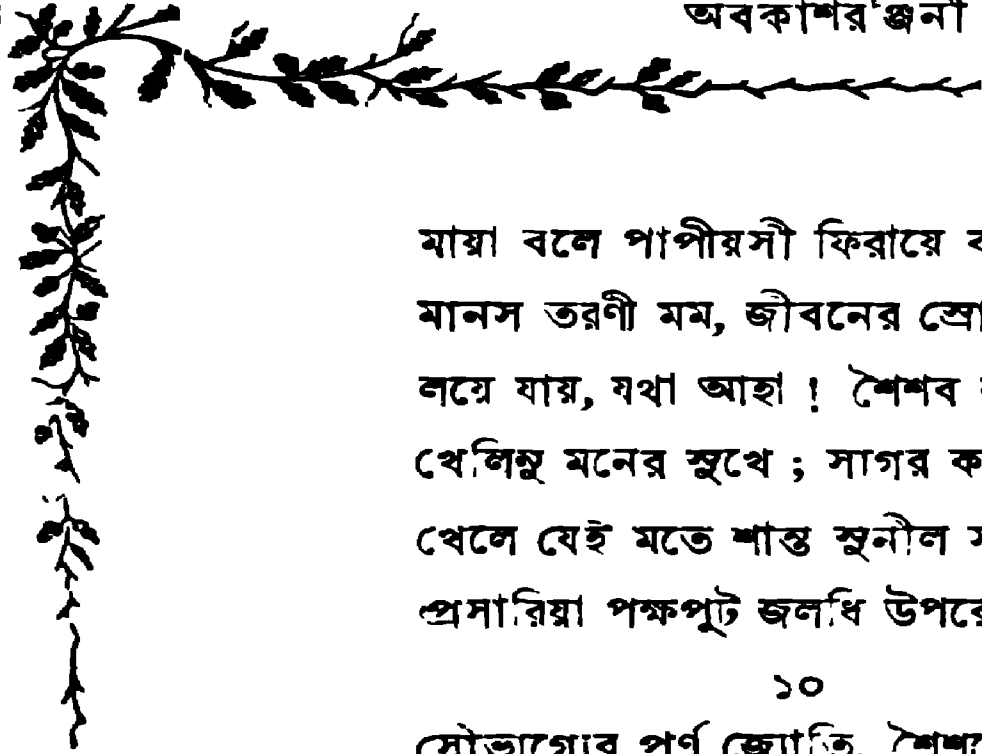 অবকাশরঞ্জনী
মায়া বলে পাপীয়সী ফিরায়ে
মানস তরণী মম, জীবনের
লয়ে যায়, যথা আহা ! শৈশব
খেলিনু মনের সুখে ; সাগর
খেলে যেই মতে শান্ত সুনীল
প্রসারিয়া পক্ষপুট জলধি উপরে
১০
সৌভাগ্যের পূর্ণ জ্যোতি,